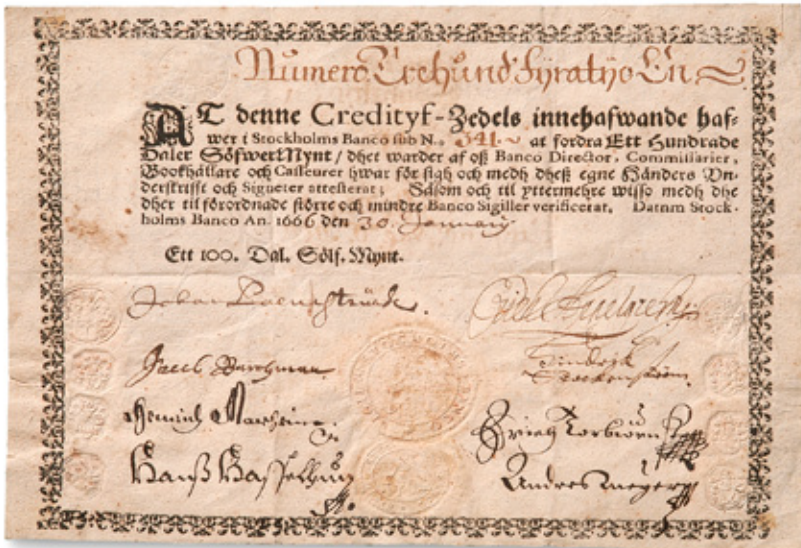 Numero Trehund Fyratijo En
AT denne Credityf-Zedels innehafwande haf-
wer i Stockholms Banco sub N.o 341. at fordra Ett Hundrade
Daler Söfwer Mynt / dhet warder af oß Banco Director, Commissarier,
Bookhållare och Casseurer hwar för sigh och medh dheß egne Händers Vn-
derskrifft och Signeter attesterat; Såsom och til yttermehre wisso medh dhe
dher til förordnade större och mindre Banco Sigiller verificerat, Datum Stock-
holms Banco An. 1666 den 30. January
Ett 100. Dal. Sölf. Mynt.
Johan
Jacob
Hindrich
Hinrich
Hanß Hasselhun
Andres Meyer